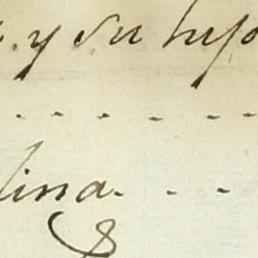 y su hijo
. . . . . - -
lina. . - -